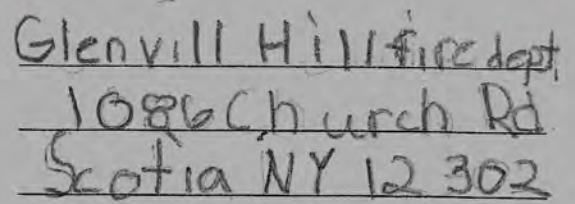 Glenvill Hill fire dept.
1086 Church Rd
Scotia NY 12302